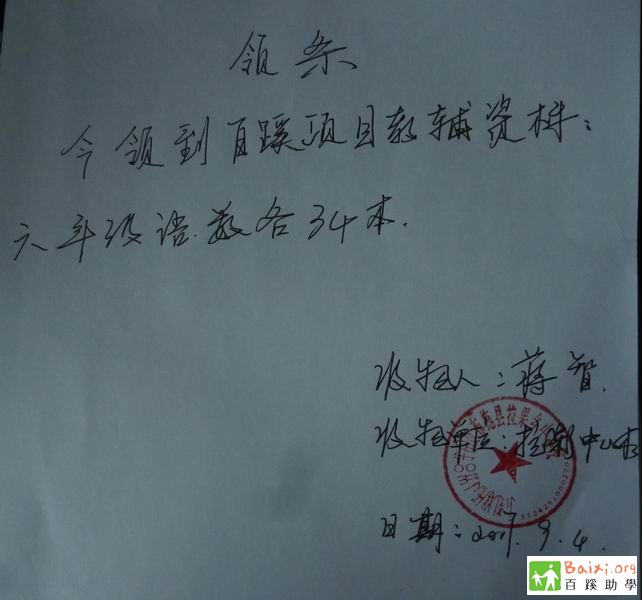 领条
今领到百蹊项目教辅资料:
六年级语.数各34本.
收书人:蒋智.
收书单位:拉果中心校
日期:2017.9.4.
Baixi.org
百蹊助學